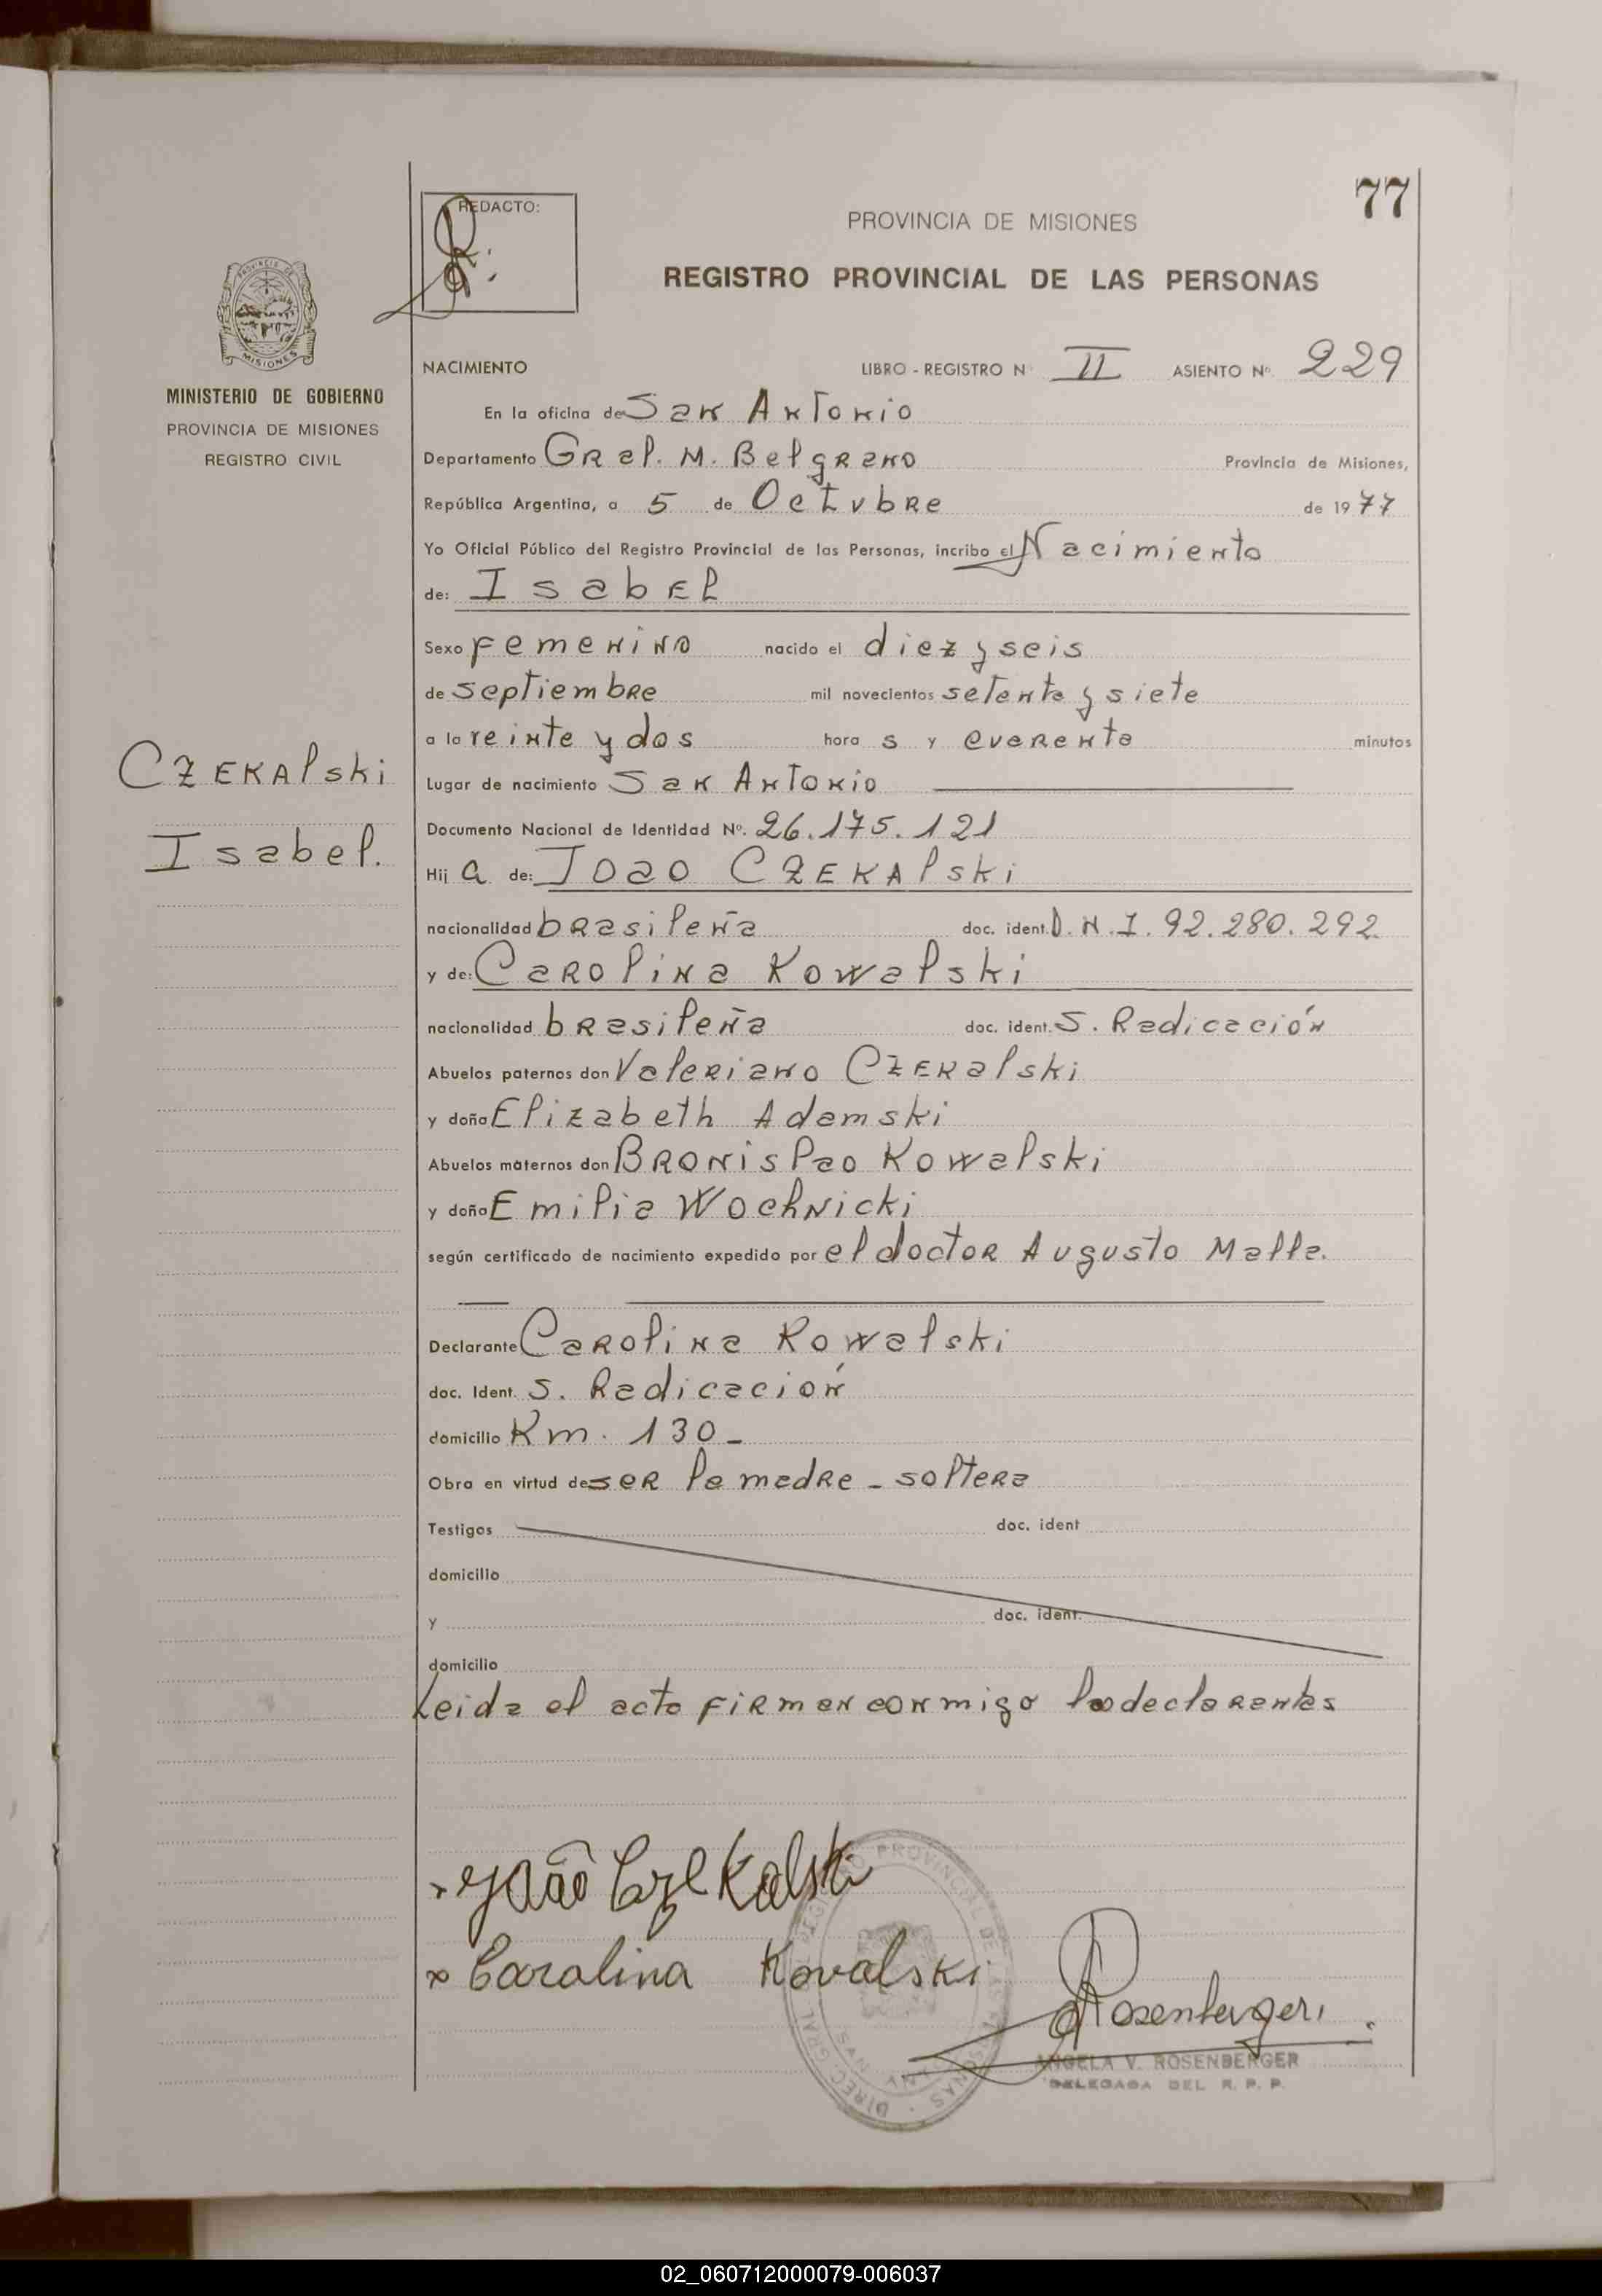 77
REDACTO:
PROVINCIA DE MISIONES
REGISTRO PROVINCIAL DE LAS PERSONAS
MINISTERIO DE GOBIERNO
PROVINCIA DE MISIONES
REGISTRO CIVIL
NACIMIENTO LIBRO - REGISTRO N II ASIENTO Nº. 229
En la oficina de San Antonio
Departamento Gral. M. Belgrano Provincia de Misiones,
República Argentina, a 5 de Octubre de 1977
Yo Oficial Público del Registro Provincial de las Personas, incribo el Nacimiento
de: Isabel
Sexo femenino nacido el diez y seis
de septiembre mil novecientos setenta y siete
a la veinte y dos hora s y cuarenta minutos
Czekalski
Isabel.
Lugar de nacimiento San Antonio
Documento Nacional de Identidad Nº. 26.175.121
Hij a de: Joao Czekalski
nacionalidad brasileña doc. ident. D.N.I. 92.280.292
y de: Carolina Kowalski
nacionalidad brasileña doc. ident. S. Radicación
Abuelos paternos don Valeriano Czekalski
y doña Elizabeth Adamski
Abuelos maternos don Bronislao Kowalski
y doña Emilia Wochnicki
según certificado de nacimiento expedido por el doctor Augusto Malla.
Declarante Carolina Kowalski
doc. Ident. S. Radicación
domicilio Km. 130-
Obra en virtud de ser la madre - soltera
Testigos doc. ident
domicilio
y doc. ident.
domicilio
Leida el acta firman conmigo los declarantes
João Czekalski
Carolina Kovalski
Rosenberger
ANGELA V. ROSENBERGER
DELEGADA DEL R. P. P.
02_060712000079-006037